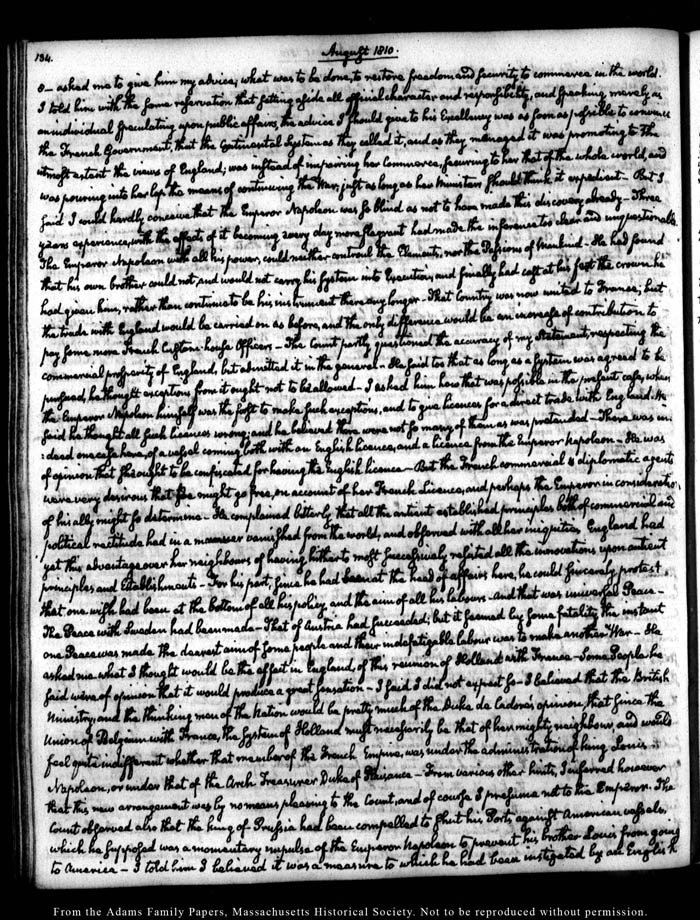 134.
August 1810.
8— asked me to give him my advice, what was to be done, to restore freedom and security to commerce in the world.
I told him with the same reservation that setting aside all official character and responsibility, and speaking merely as
an individual speculating upon public affairs, the advice I should give to his Excellency was as soon as possible to convince
the French Government, that the Continental System as they called it, and as they managed it was promoting to the
utmost extent the views of England; was instead of impairing her Commerce, securing to her that of the whole world, and
was pouring into her lap the means of continuing the War, just as long as her Ministers should think it expedient— But I
said I could hardly conceive that the Emperor Napoleon was so blind as not to have made this discovery already— Three
years experience, with the effect of it becoming every day more flagrant had made the inference too clear and unquestionable.
The Emperor Napoleon with all his power, could neither controul the Elements, nor the Passions of Mankind— He had found
that his own brother could not, and would not carry his System into Execution, and finally had cast at his feet the crown he
had given him, rather than continue to be his instrument there any longer— That Country was now united to France; but
the trade with England would be carried on as before, and the only difference would be an increase of contribution to
pay some more French Custom-house Officers— The Count partly questioned the accuracy of my Statement, respecting the
commercial prosperity of England, but admitted it in the general— He said too that as long as a System was agreed to be
pursued, he thought exceptions from it ought not to be allowed— I asked him how that was possible in the present case, when
the Emperor Napoleon himself was the first to make such exceptions, and to give licences for a direct trade with England. He
said he thought all such licences wrong; and he believed there were not so many of them as was pretended— There was in:
:deed one case here, of a vessel coming both with an English licence, and a licence from the Emperor Napoleon— He was
of opinion that she ought to be confiscated for having the English licence— But the French commercial & diplomatic agents
were very desirous that she might go free, on account of her French Licence, and perhaps the Emperor in consideration
of his ally might so determine— He complained bitterly that all the antient established principles both of commercial and
political rectitude had in a manner vanished from the world, and observed with all her iniquities England had
yet this advantage over her neighbours of having hitherto most successfully resisted all the innovations upon antient
principles and Establishments— For his part, since he had been at the head of affairs here, he could sincerely protest,
that one wish had been at the bottom of all his policy, and the aim of all his labours— And that was universal Peace—
The Peace with Sweden had been made— That of Austria had succeeded; but it seemed by some fatality, the instant
one Peace was made the dearest aim of some people and their indefatigable labour was to make another War— He
asked me what I thought would be the effect in England, of this reunion of Holland with France— Some People he
said were of opinion that it would produce a great sensation— I said I did not expect so— I believed that the British
Ministry, and the thinking men of the Nation would be pretty much of the Duke de Cadore's opinion, that since the
Union of Belgium with France, the System of Holland must necessarily be that of her mighty neighbour, and would
feel quite indifferent whether that member of the French Empire, was under the administration of king Louis
Napoleon, or under that of the Arch Treasurer Duke of Plaisance— From various other hints, I inferred however
that this new arrangement was by no means pleasing to the Count, and of course I presume not to the Emperor. The
Count observed also that the king of Prussia had been compelled to shut his Ports against American vessels,
which he supposed was a momentary impulse of the Emperor Napoleon to prevent his brother Louis from going
to America— I told him I believed it was a measure to which he had been instigated by an English
From the Adams Family Papers, Massachusetts Historical Society. Not to be reproduced without permission.